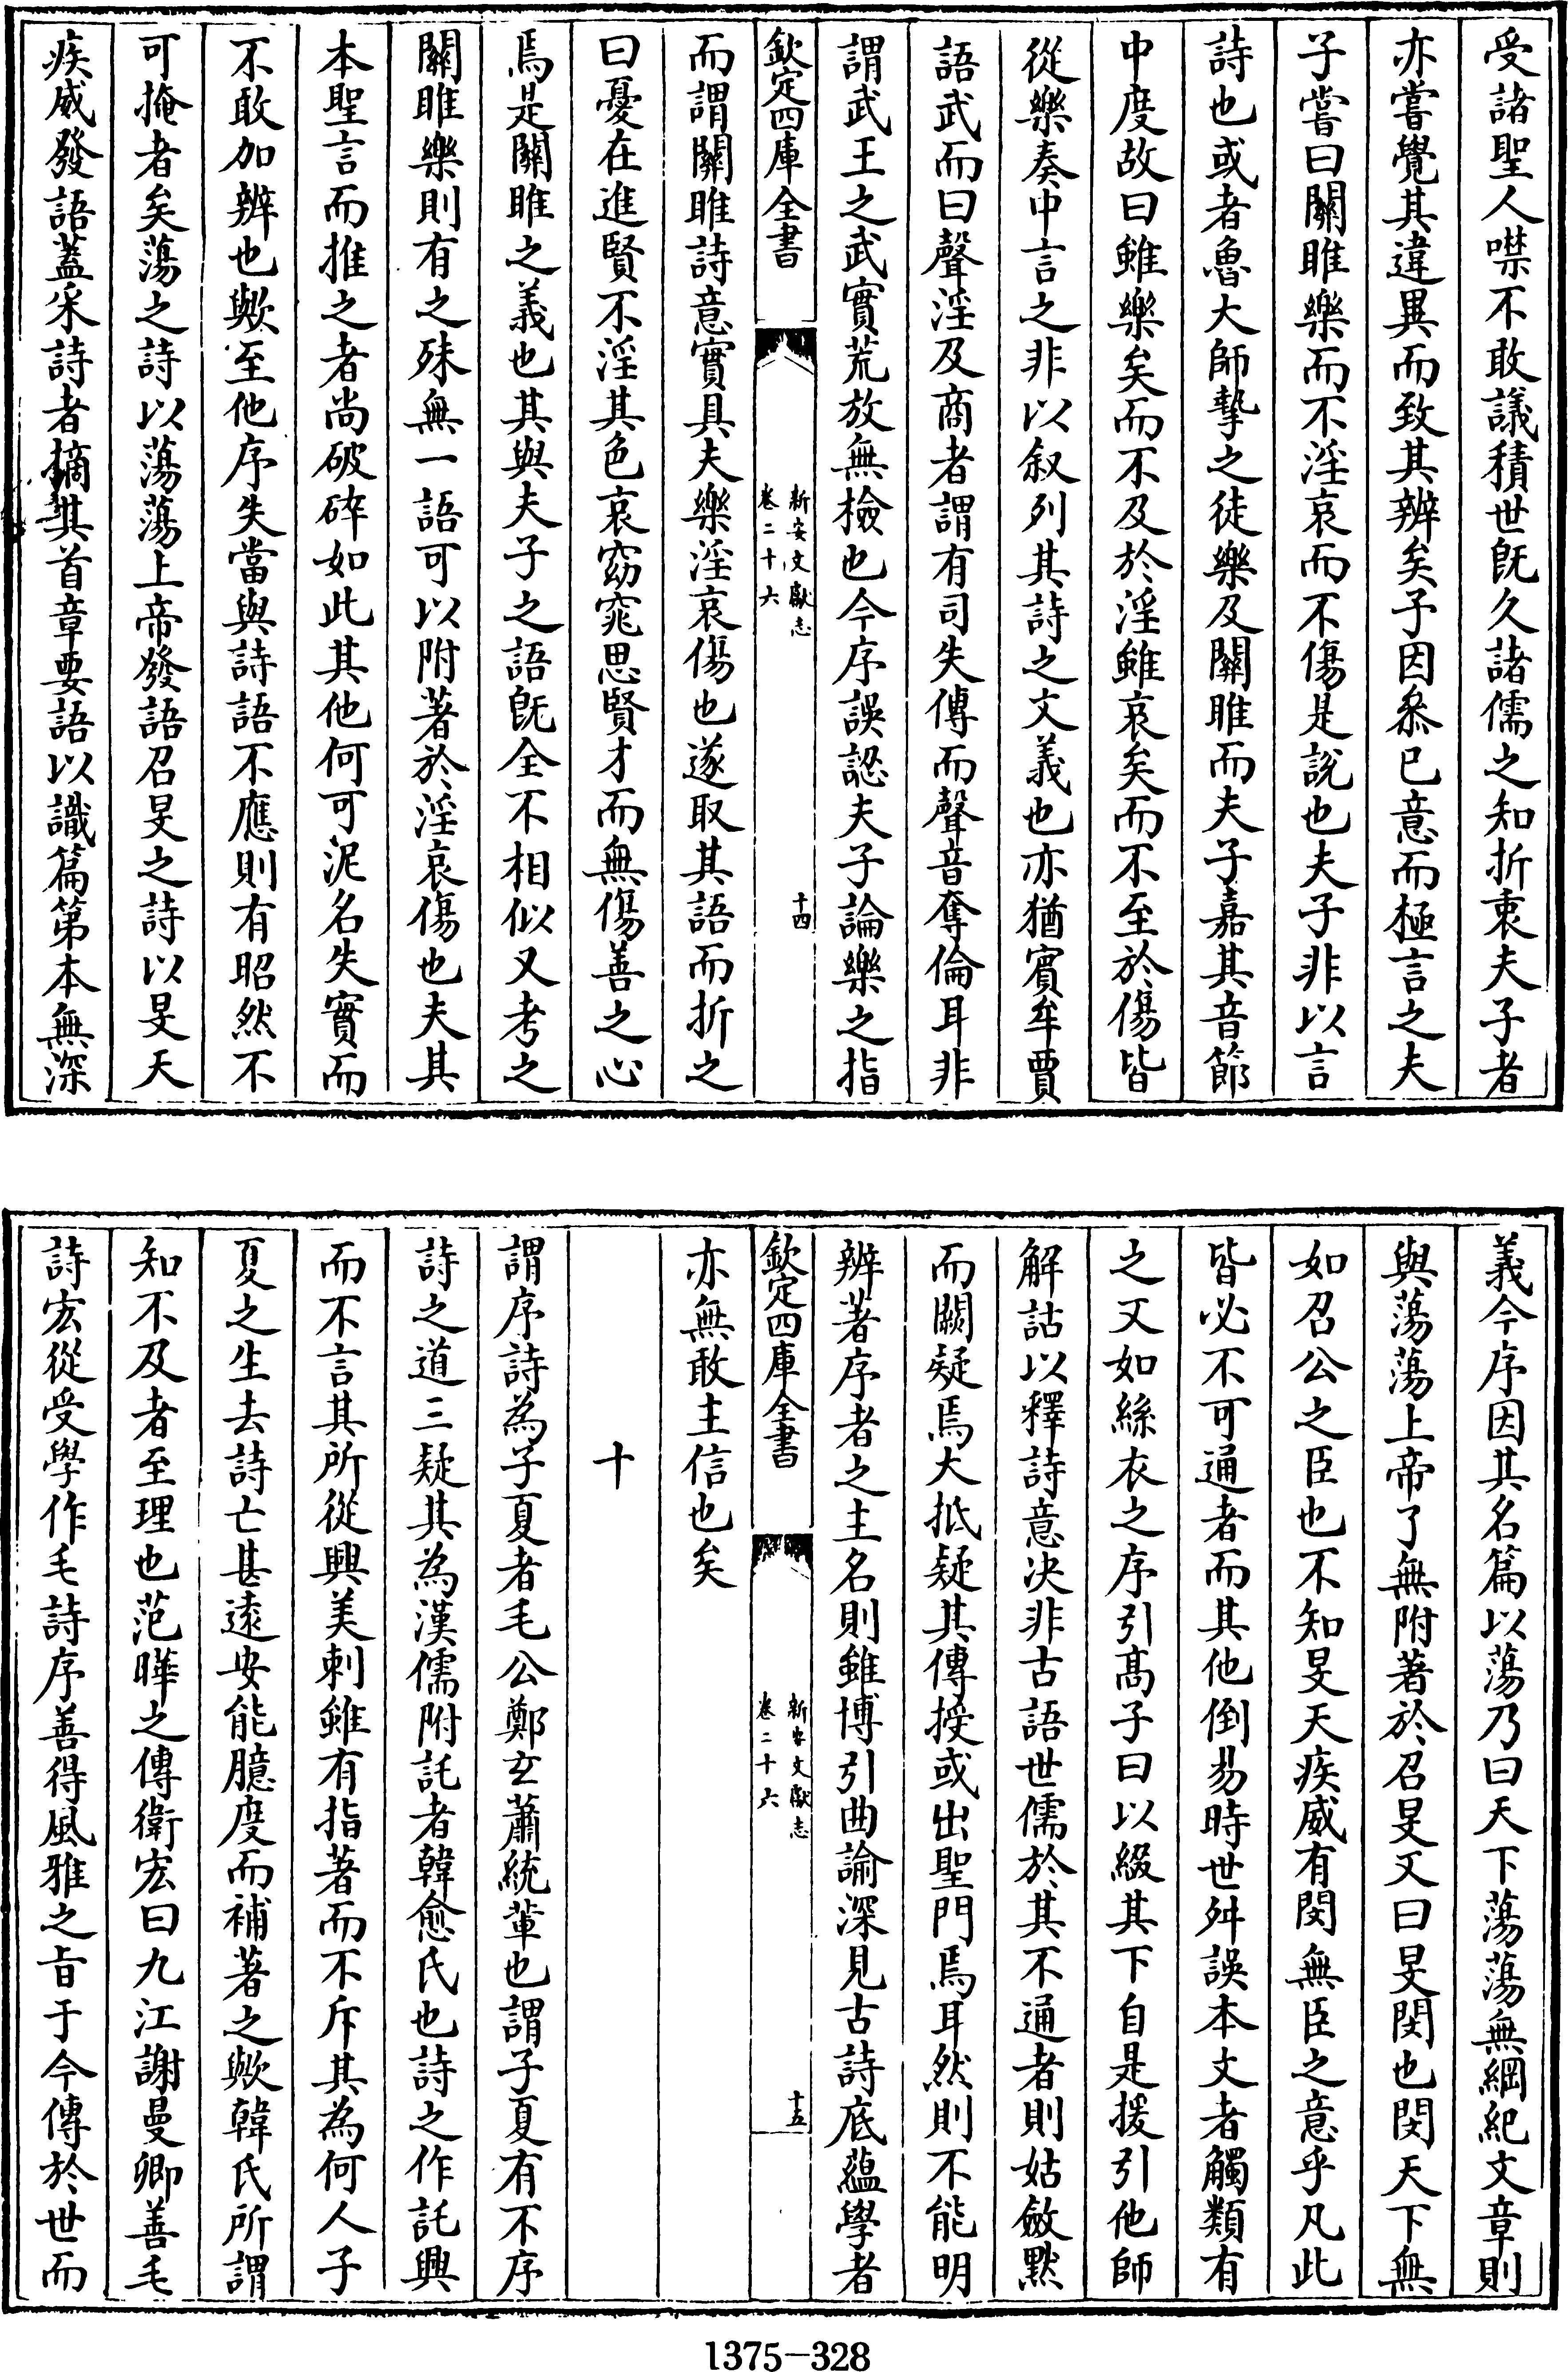 受諸聖人噤不敢議積世既久諸儒之知折衷夫子者
亦嘗覺其違異而致其辨矣予因叅已意而極言之夫
子嘗曰關雎樂而不淫哀而不傷是說也夫子非以言
詩也或者魯大師摯之徒樂及關雎而夫子嘉其音節
中度故曰雖樂矣而不及於淫雖哀矣而不至於傷皆
從樂奏中言之非以叙列其詩之文義也亦猶賓牟賈
語武而曰聲淫及商者謂有司失傳而聲音奪倫耳非
謂武王之武實荒放無檢也今序誤認夫子論樂之指
欽定四庫全書
新安文獻志
卷二十六
十四
而謂關雎詩意實具夫樂淫哀傷也遂取其語而折之
曰憂在進賢不淫其色哀窈窕思賢才而無傷善之心
焉是關雎之義也其與夫子之語既全不相似又考之
關雎樂則有之殊無一語可以附著於淫哀傷也夫其
本聖言而推之者尚破碎如此其他何可泥名失實而
不敢加辨也歟至他序失當與詩語不應則有昭然不
可掩者矣蕩之詩以蕩蕩上帝發語召旻之詩以旻天
疾威發語蓋采詩者摘其首章要語以識篇第本無深
義今序因其名篇以蕩乃曰天下蕩蕩無綱紀文章則
與蕩蕩上帝了無附著於召旻又曰旻閔也閔天下無
如召公之臣也不知旻天疾威有閔無臣之意乎凡此
皆必不可通者而其他倒易時世舛誤本文者觸類有
之又如絲衣之序引髙子曰以綴其下自是援引他師
解詁以釋詩意决非古語世儒於其不通者則姑斂黙
而闕疑焉大抵疑其傳授或出聖門焉耳然則不能明
辨著序者之主名則雖博引曲諭深見古詩底蘊學者
欽定四庫全書
新安文獻志
卷二十六
十五
亦無敢主信也矣
十
謂序詩為子夏者毛公鄭玄蕭統軰也謂子夏有不序
詩之道三疑其為漢儒附託者韓愈氏也詩之作託興
而不言其所從興美刺雖有指著而不斥其為何人子
夏之生去詩亡甚遠安能臆度而補著之歟韓氏所謂
知不及者至理也范曄之傳衛宏曰九江謝曼卿善毛
詩宏從受學作毛詩序善得風雅之旨于今傳於世而
1375-328